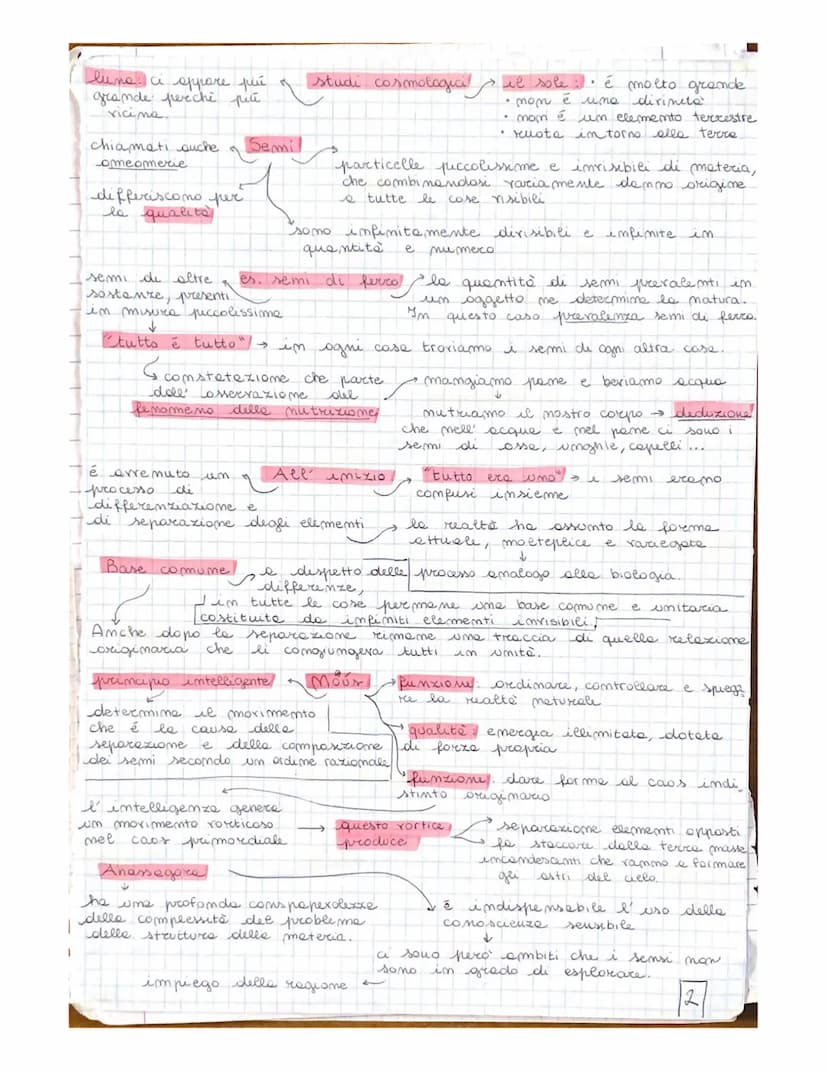 luna: ci appare più
grande perché più
vicina.
studi cosmologici
il sole: · é molto grande
· non é una divinità
· non é un elemento terrestre
· ruota intorno alla terra
chiamati anche
omeomerie
Semi
particelle piccolissime e invisibili di materia,
che combinandosi variamente danno origine
a tutte le cose visibili
differiscono per
la qualità
sono infinitamente divisibili e infinite in
quantità e numero
semi di altre
sostanze, presenti
in misura piccolissima
es. semi di ferro
la quantità di semi prevalenti in
un oggetto ne determina la natura.
In questo caso prevalenza semi di ferro.
"tutto é tutto" → in ogni cosa troviamo i semi di ogni altra cosa.
constatazione che parte
dall' osservazione del
fenomeno della nutrizione
mangiamo pane e beviamo acqua
nutriamo il nostro corpo → deduzione
che nell' acqua e nel pane ci sono i
semi di ossa, unghie, capelli ...
é avvenuto un
processo di
differenziazione e
di separazione degli elementi
All' inizio
"tutto era uno" → i semi erano
confusi insieme
la realtà ha assunto la forma
attuale, molteplice e variegata
processo analogo alla biologia.
Base comune
a dispetto delle
differenze,
in tutte le cose permane una base comune e unitaria
costituita da infiniti elementi invisibili,
Anche dopo la separazione rimane una traccia di quella relazione
originaria che li congiungeva tutti in unità.
principio intelligente
Noús
funzione: ordinare, controllare e spiega-
re la realtà naturale
determina il movimento
che é la causa della
separazione e della composizione
dei semi secondo un ordine razionale
qualità: energia illimitata, dotata
di forza propria
funzione: dare forma al caos indi-
stinto originario
l' intelligenza genera
un movimento vorticoso
nel caos primordiale
questo vortice
produce
separazione elementi opposti
fa staccare dalla terra masse
incandescenti che vanno a formare
gli astri del cielo.
Anassagora
ha una profonda consapevolezza
della complessità del problema
della struttura della materia.
é indispensabile l' uso della
conoscienza sensibile
ci sono però ambiti che i sensi non
sono in grado di esplorare.
impiego della ragione
2